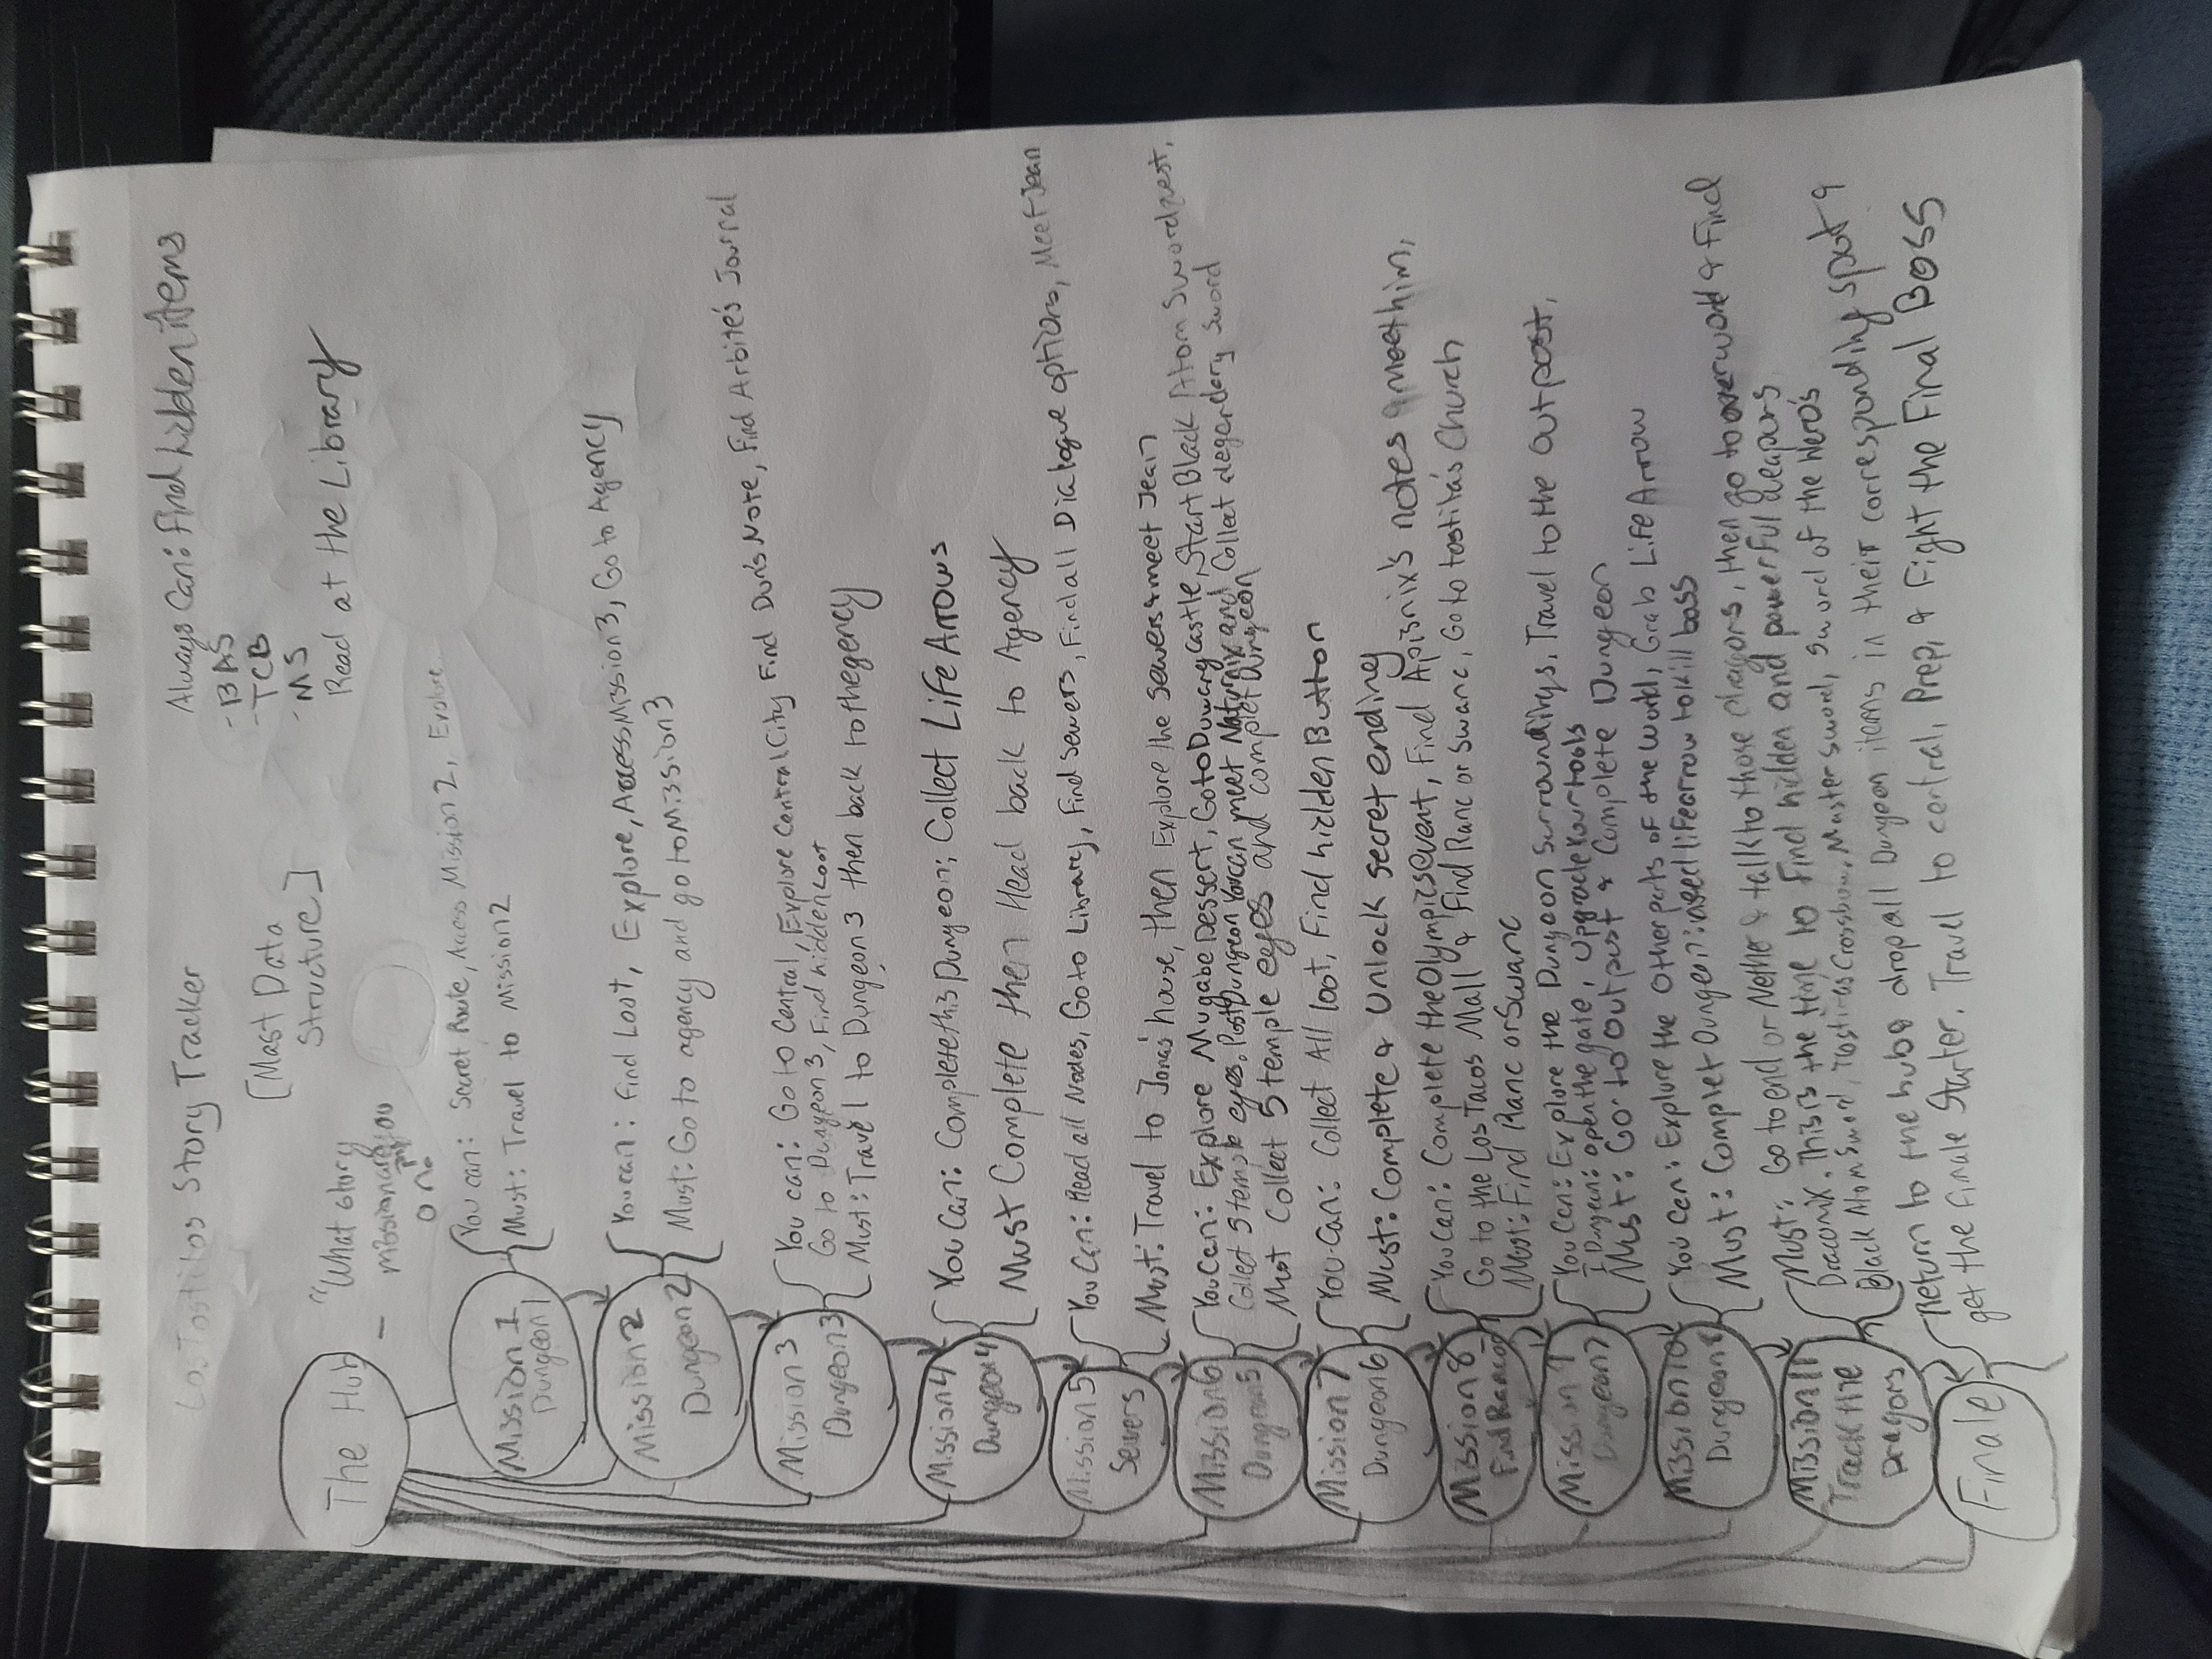 Los Tostitos Story Tracker
[Mast Data
Structure]
Always Can: Find hidden items
- BAS
- TCB
- MS
Read at the Library
The Hub
"What story
mission are you
on?
Mission 1
Dungeon 1
You can: Secret Route, Access Mission 2, Explore
Must: Travel to Mission 2
Mission 2
Dungeon 2
You can: Find Loot, Explore, Access Mission 3, Go to Agency
Must: Go to agency and go to Mission 3
Mission 3
Dungeon 3
You can: Go to Central, Explore Central City Find Dun's Note, Find Arbite's Journal
Go to Dungeon 3, Find hidden Loot
Must: Travel to Dungeon 3 then back to thegency
Mission 4
Dungeon 4
You Can: Complete this Dungeon; Collect Life Arrows
Must Complete then Head back to Agency
Mission 5
Sewers
You Can: Read all Nodes, Go to Library, Find Sewers, Find all Dialogue options, Meet Jean
Must: Travel to Jona's house, then Explore the Sewers & meet Jean
Mission 6
Dungeon 5
You Can: Explore Mugabe Dessert, Go to Duwang Castle, Start Black Atom Sword quest,
Collect 5 temple eyes. Post Dungeon You can meet Naturnix and Collect a legendary Sword
Must Collect 5 temple eyes and complet Dungeon
Mission 7
Dungeon 6
You Can: Collect All loot, Find hidden Button
Must: Complete & Unlock secret ending
Mission 8
Find Ranc or
You Can: Complete the Olympics event, Find Apisnix's notes & meet him,
Go to the Los Tacos Mall & Find Ranc or Swanc, Go to tostita's Church
Must: Find Ranc or Swanc
Mission 9
Dungeon 7
You Can: Explore the Dungeon Surroundings, Travel to the outpost,
I Dungeon: open the gate, upgrade Your tools
Must: Go to Outpost & Complete Dungeon
Mission 10
Dungeon 8
You Can: Explore the Other parts of the World, Grab Life Arrow
Must: Complet Dungeon: need life arrow to kill boss
Mission 11
Track the
Dragons
Must: Go to end or Nether & talk to those dragons, then go to overworld & Find
Draconix. This is the time to Find hidden and powerful weapons
Black Atom Sword, Tostita's Crossbow, Master Sword, Sword of the Hero's
Finale
Return to the hub & drop all Dungeon items in their corresponding spot &
get the Finale Starter. Travel to central, Prep, & Fight the Final Boss